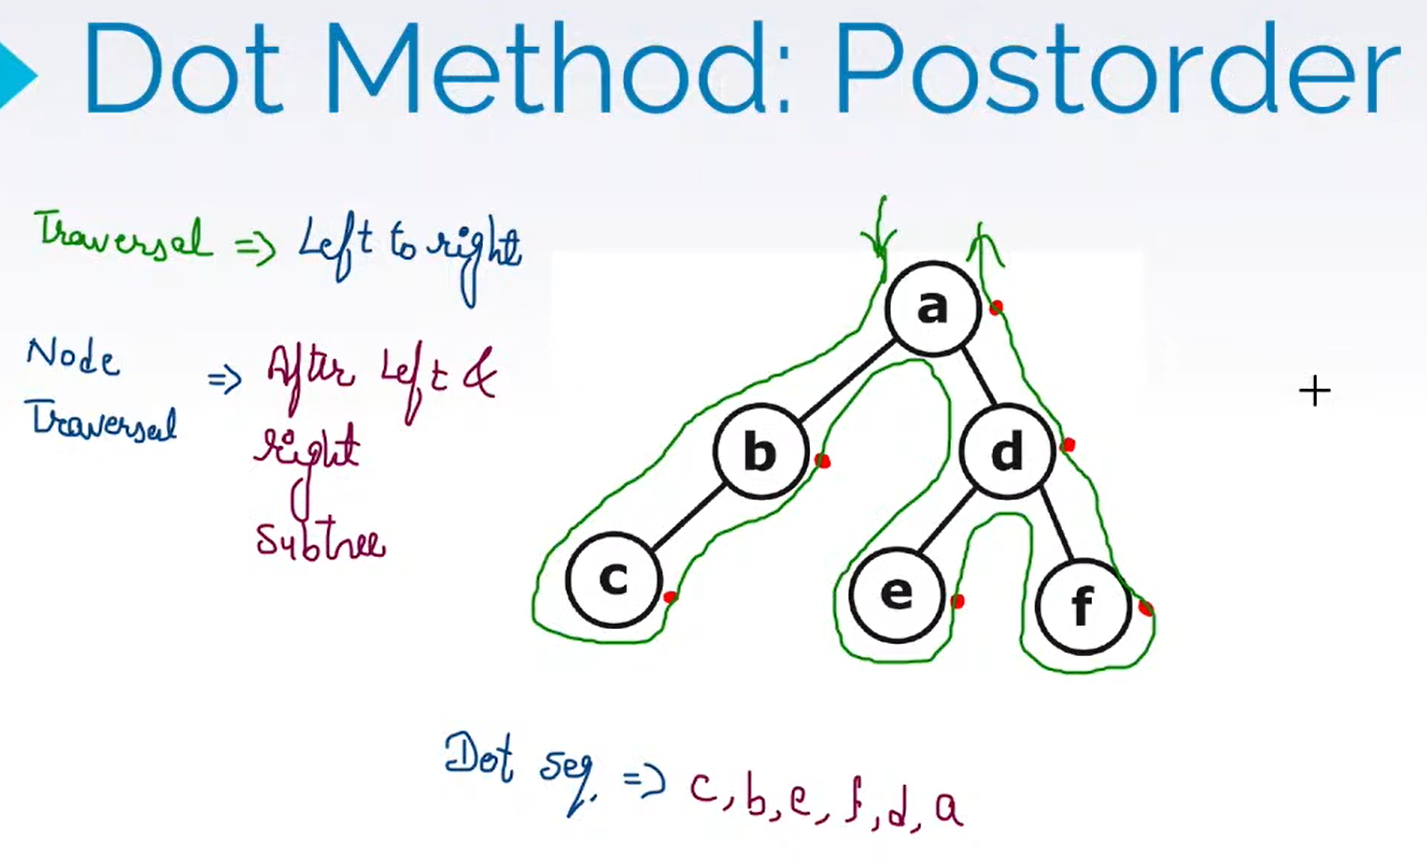 Dot Method: Postorder
Traversal => Left to right
Node
Traversal => After Left &
right
Subtree
a
b
d
c
e
f
Dot seq. => c, b, e, f, d, a